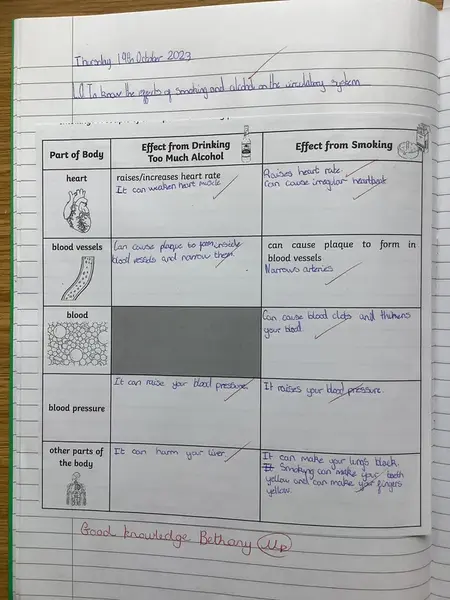 Thursday 19th October 2023
LO To know the effects of smoking and alcohol on the circulatory system
Part of Body
Effect from Drinking
Too Much Alcohol
Effect from Smoking
heart
raises/increases heart rate
It can weaken heart muscle
Raises heart rate.
Can cause irregular heartbeat
blood vessels
Can cause plaque to form inside
blood vessels and narrow them
can cause plaque to form in
blood vessels
Narrows arteries
blood
Can cause blood clots and thickens
your blood.
blood pressure
It can raise your blood pressure.
It raises your blood pressure.
other parts of
the body
It can harm your liver.
It can make your lungs black.
It Smoking can make your teeth
yellow and can make your fingers
yellow.
Good knowledge Bethany